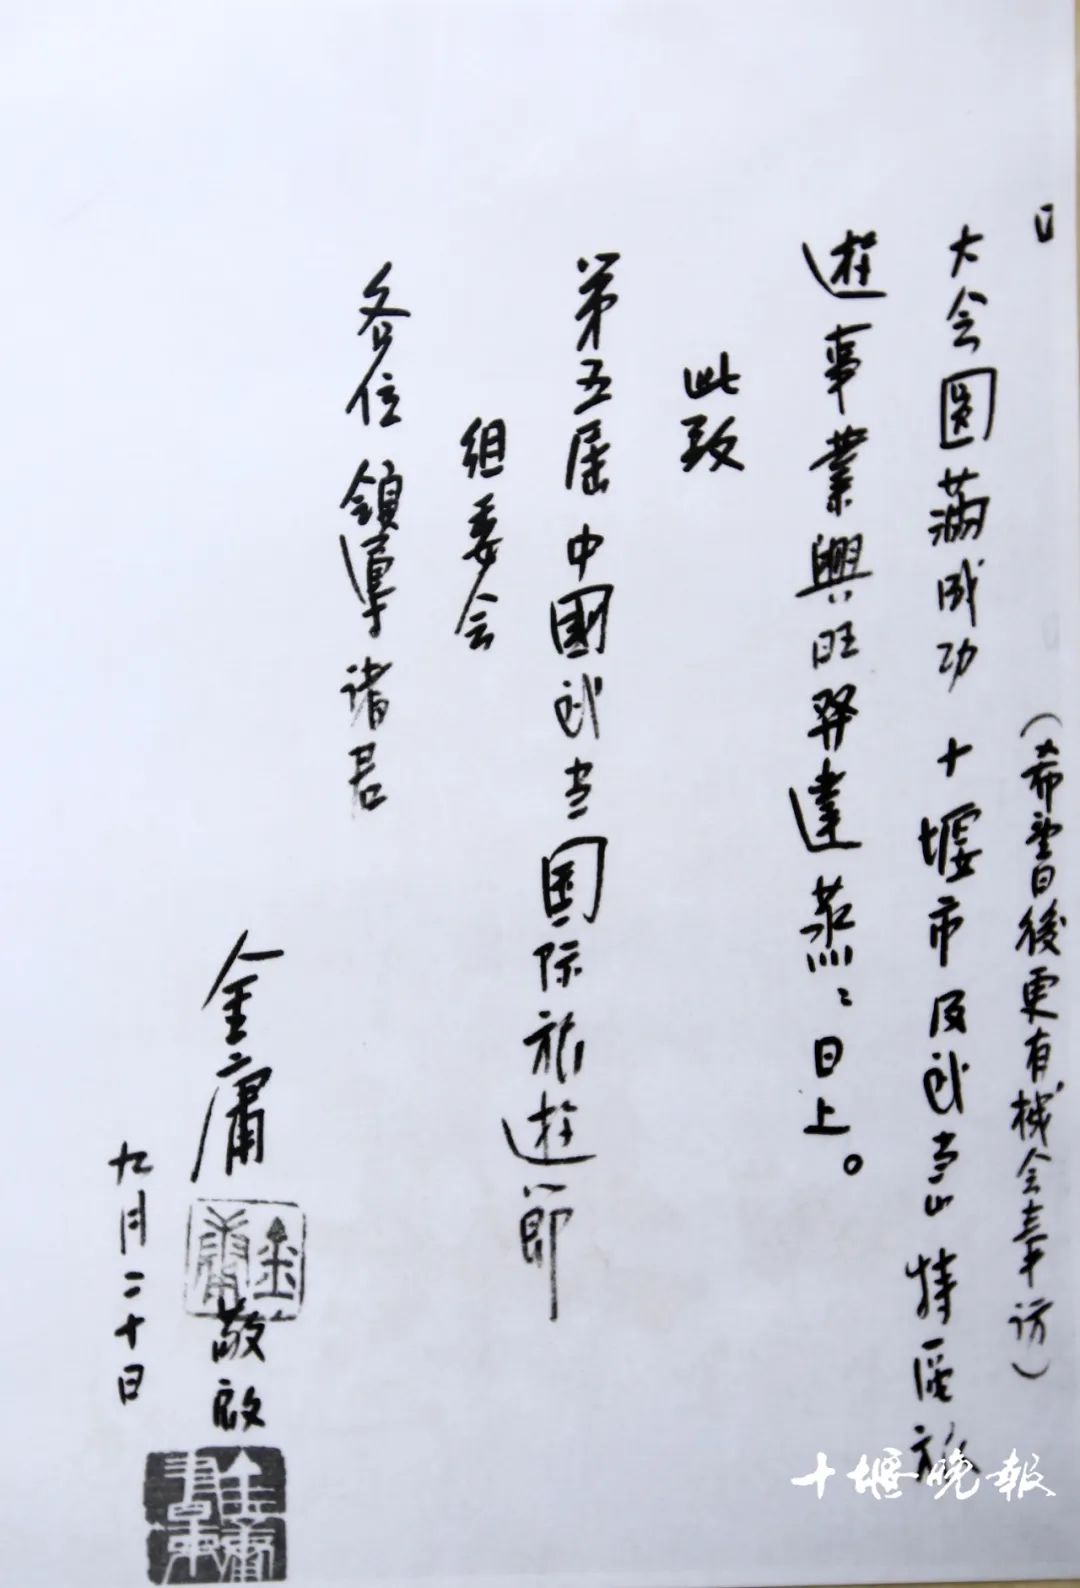 (希望日後更有機会奉訪)
大会圓滿成功 十堰市及武当山特區旅
遊事業興旺發達蒸々日上。
此致
第五届中國武当国际旅遊節
組委会
各位領導諸君
金庸 敬啟
金庸
九月二十日
十堰晚報